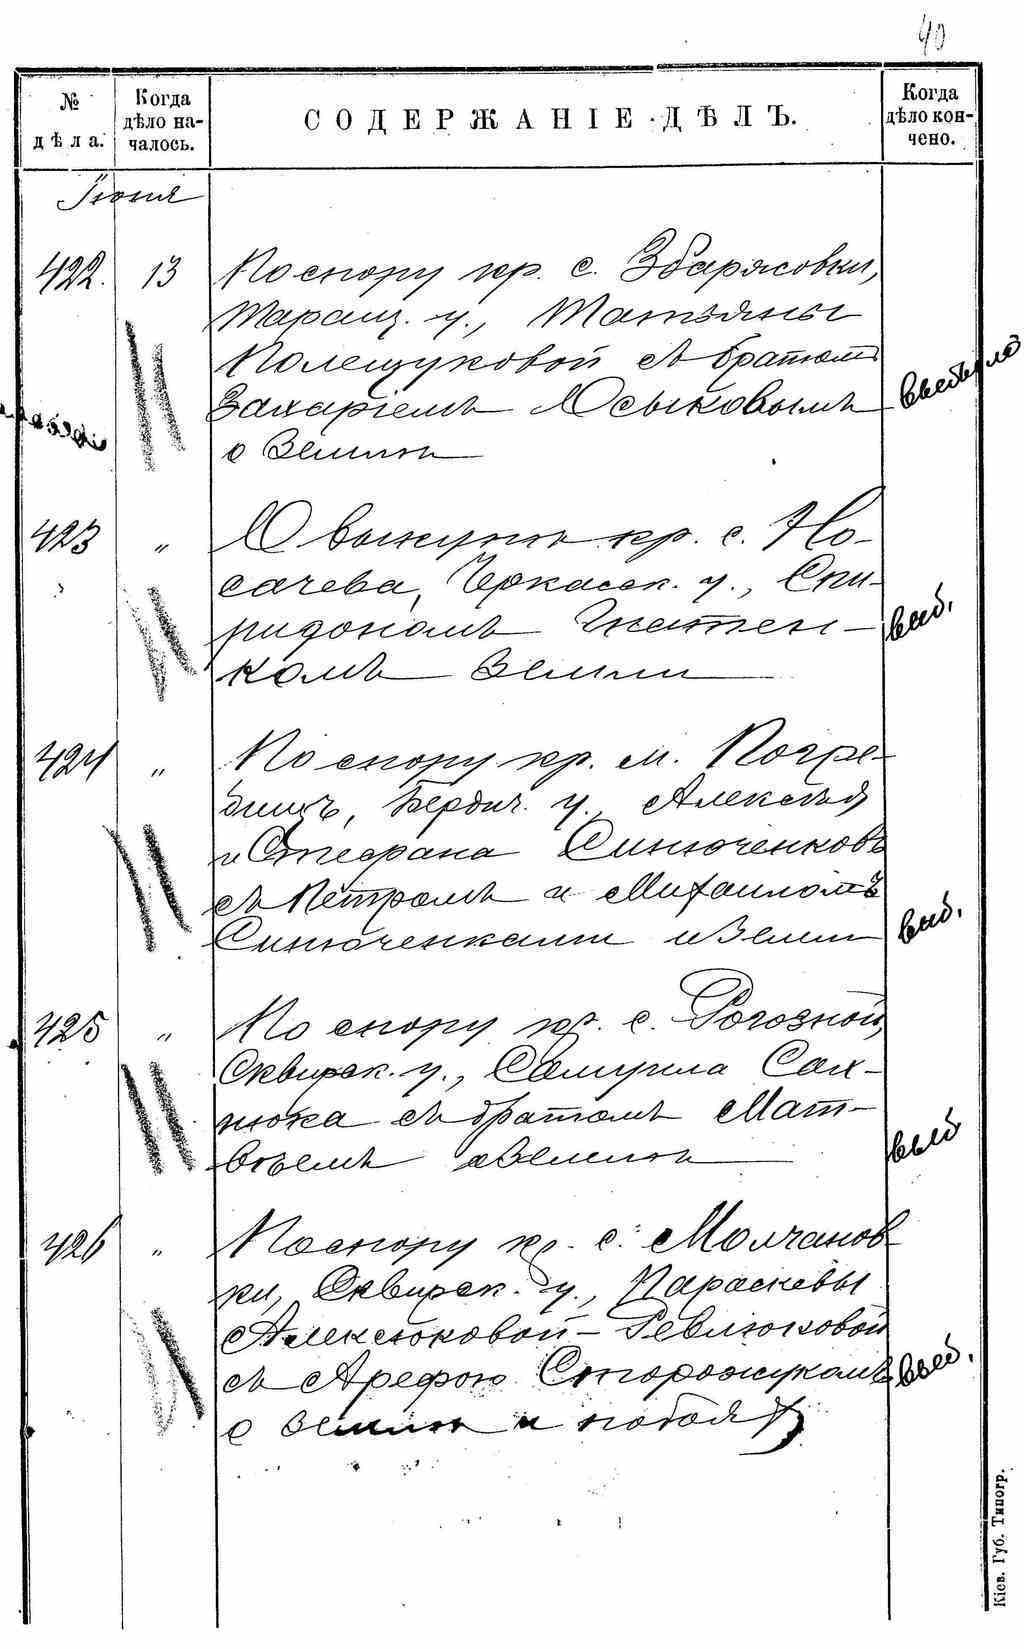 40
№ дѣла.
Когда дѣло началось.
СОДЕРЖАНІЕ ДѢЛЪ.
Когда дѣло кончено.
Іюня
422. 13 По спору кр. с. Збаржовки,
Таращ. у., Татьяны
Полещуковой съ братомъ
Захаріемъ Осыковымъ
о землѣ
423 " О выкупѣ кр. с. Но-
сачева, Черкасск. у., Спи-
ридономъ Гнатен-
комъ земли
выб.
424 " По спору кр. м. Погре-
бищъ, Бердич. у., Алексѣя
и Стефана Синюченковъ
съ Петромъ и Михаиломъ
Синюченками о земли
выб.
425 " По спору кр. с. Рогозной,
Сквирск. у., Самуила Сах-
нюка съ братомъ Мат-
вѣемъ о землѣ
выб
426 " По спору кр. с. Молчанов-
ки, Сквирск. у., Параскевы
Алексюковой-Ревлюковой
съ Арефою Сторожукомъ
о землѣ и побоях
выб.
Кіев. Губ. Типогр.